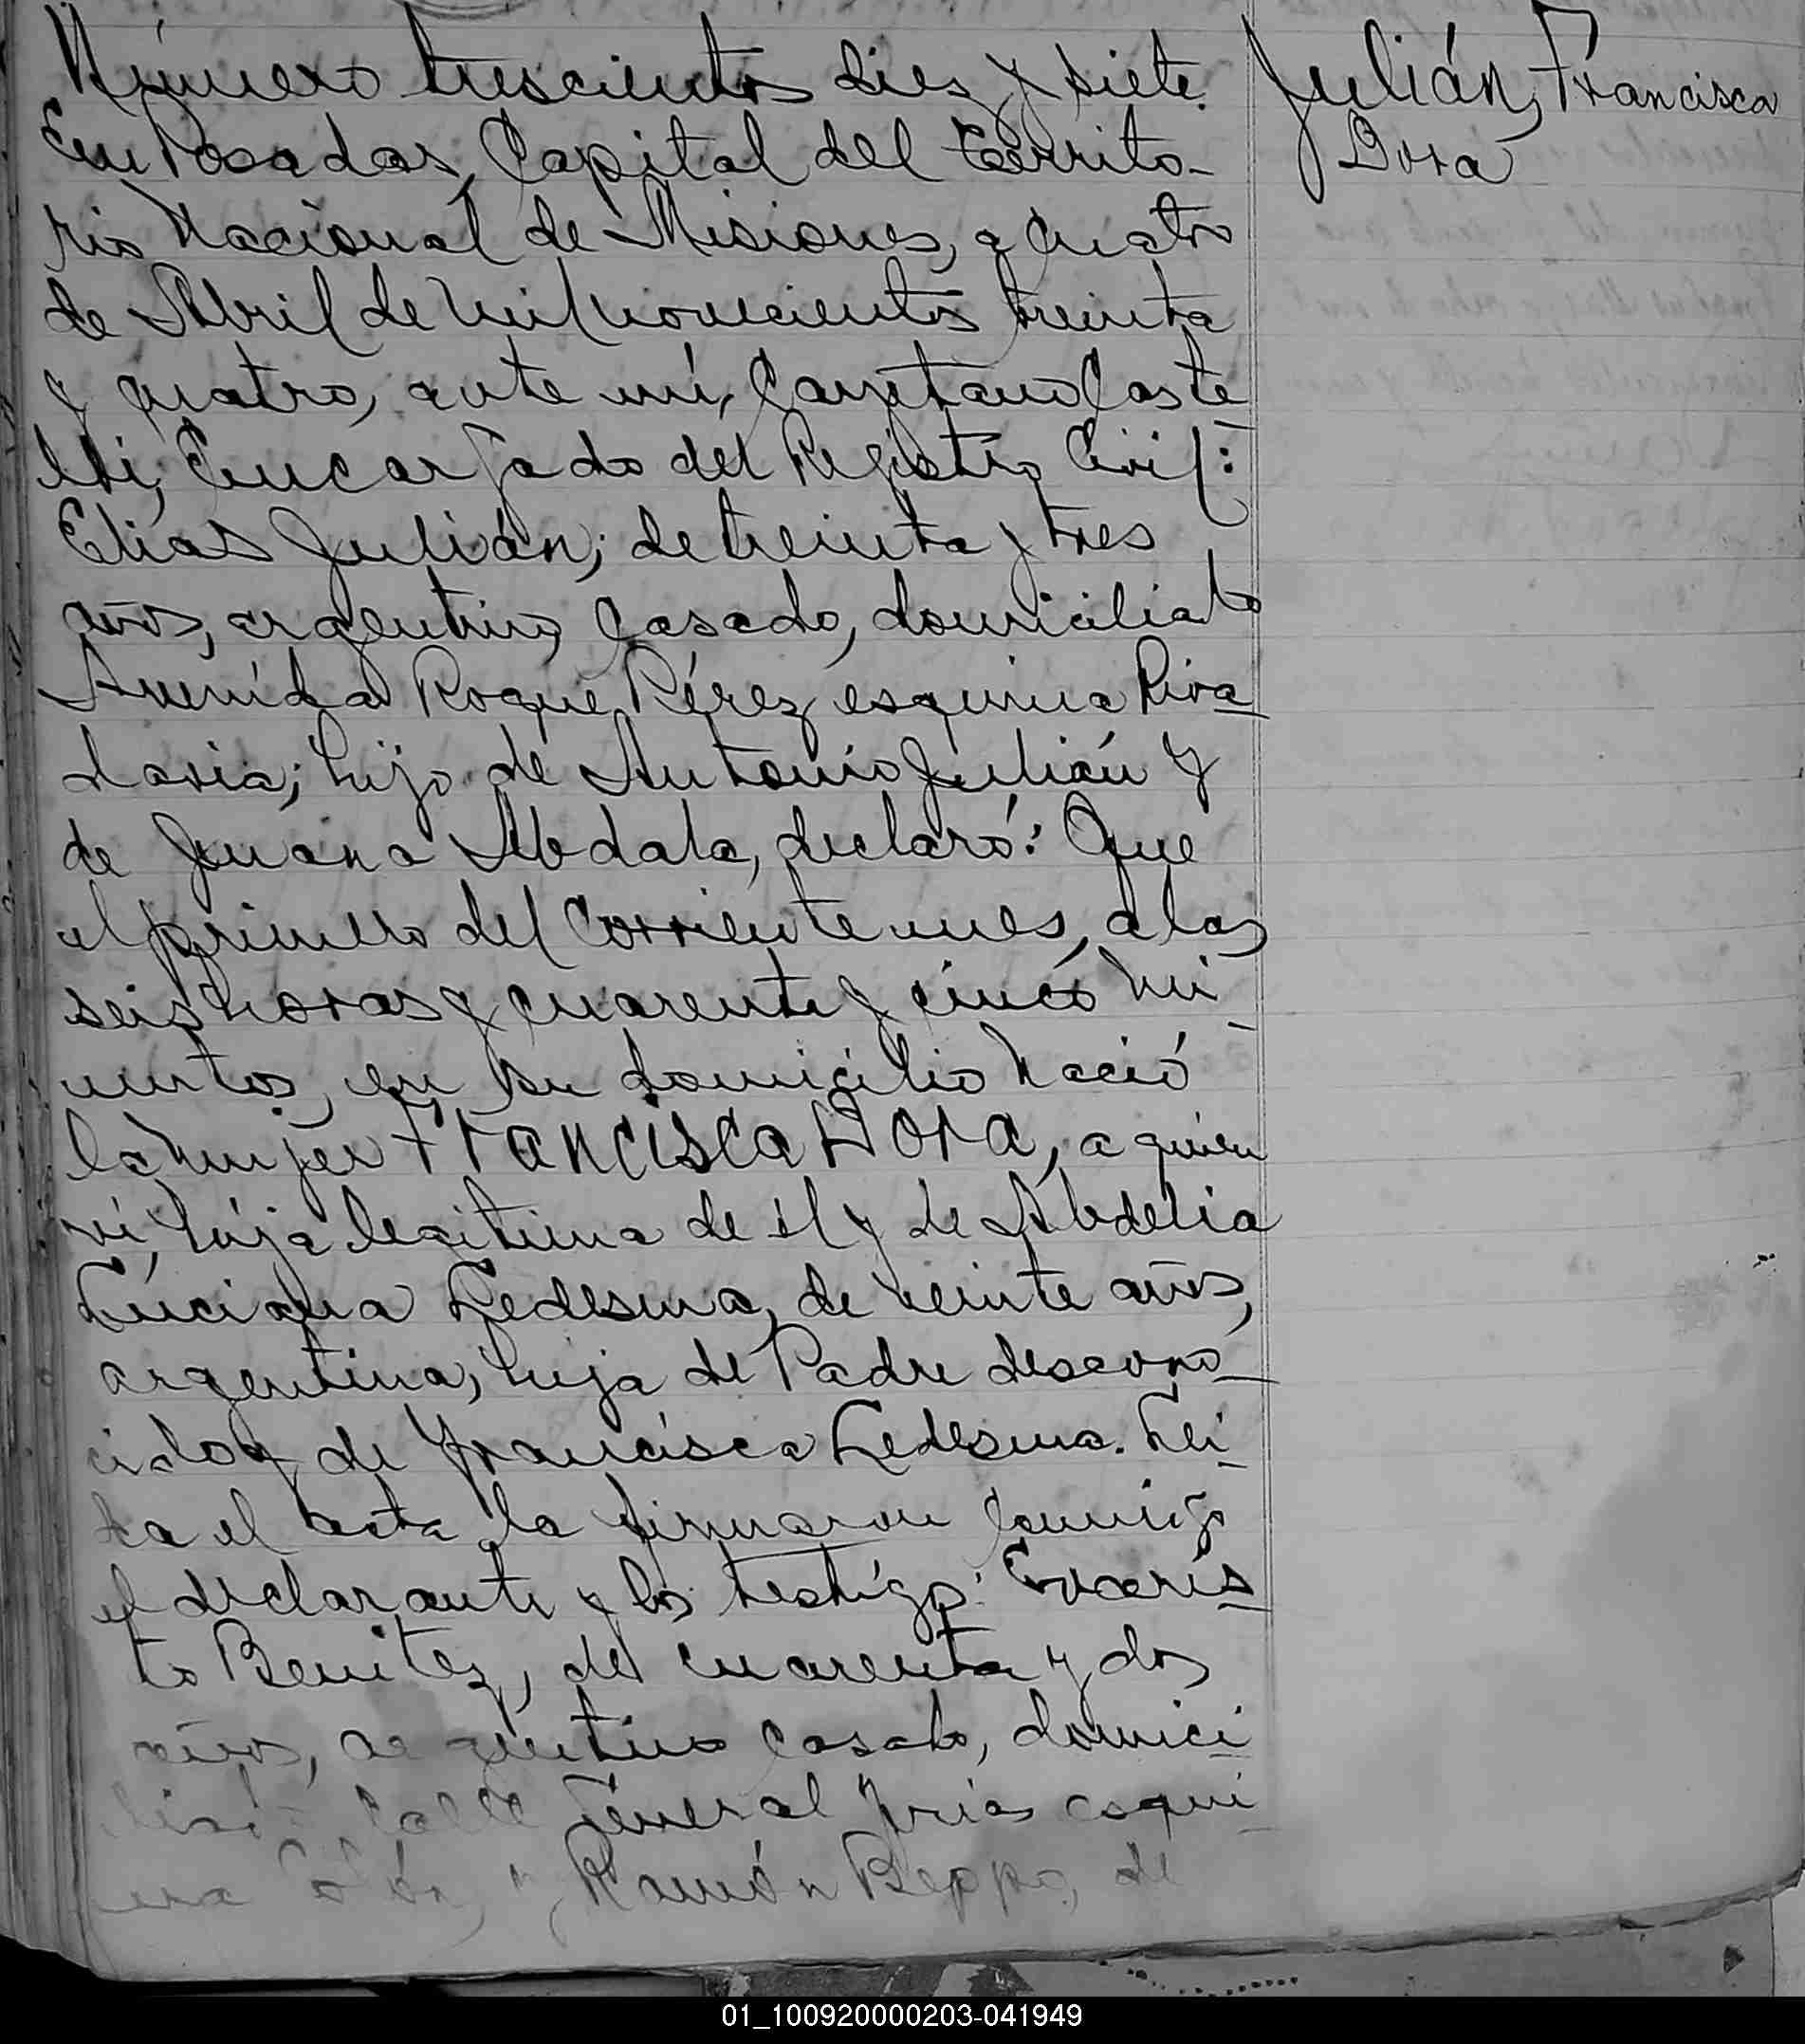 Número trescientos diez y siete.
En Posadas, Capital del Territo-
rio Nacional de Misiones, a cuatro
de Abril de mil novecientos treinta
y cuatro, ante mí, Cayetano Caste-
lli, Encargado del Registro Civil:
Elías Julián; de treinta y tres
años, argentino, casado, domiciliado
Avenida Roque Pérez esquina Riva-
davia; hijo de Antonio Julián y
de Juana Abdala, declaró: Que
el primero del corriente mes, a las
seis horas y cuarenta y cinco mi-
nutos, en su domicilio nació
la mujer FRANCISCA DORA, a quien
ví, hija legítima de él y de Abdelia
Luciana Ledesma, de veinte años,
argentina, hija de Padre descono-
cido y de Francisca Ledesma. Leí-
da el acta la firmaron conmigo
el declarante y los testigos: Evaris-
to Benitez, de cuarenta y dos
años, argentino casado, domici-
liado calle General Frías esqui-
na Colón, y Ramón Beppo, de
Julián, Francisca
Dora
01_100920000203-041949